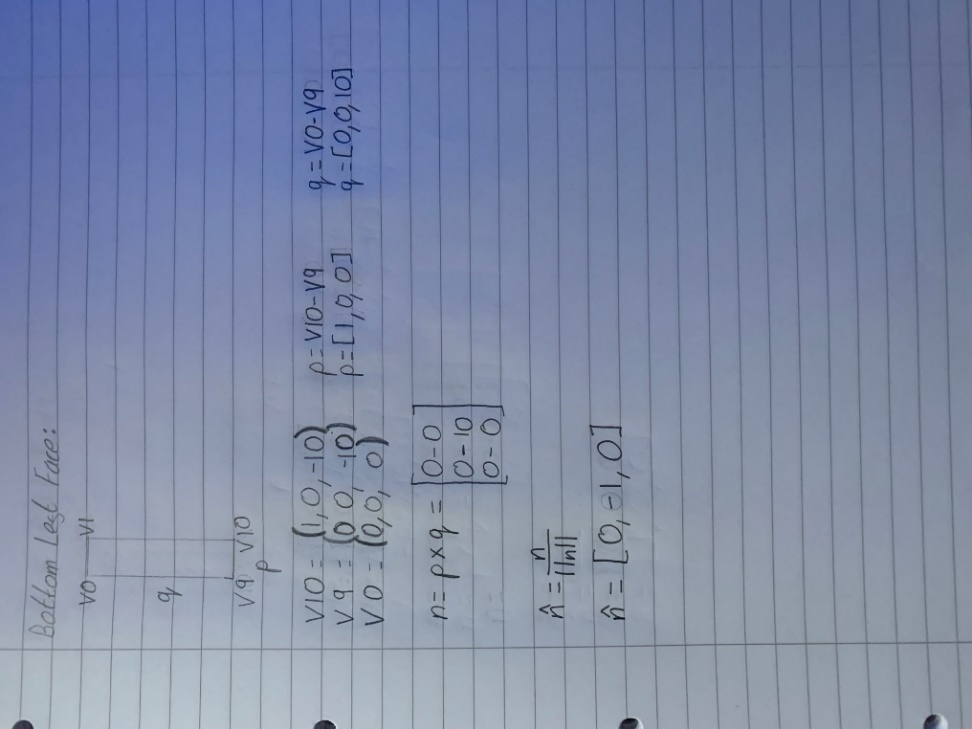 Bottom Left Face:
V0 V1
q
V9 V10
p
V10 = (1, 0, -10) p = V10-V9 q = V0-V9
V9 = (0, 0, -10) p = [1, 0, 0] q = [0, 0, 10]
V0 = (0, 0, 0)
n = p × q = [0-0
0-10
0-0]
n̂ = n
||n||
n̂ = [0, -1, 0]